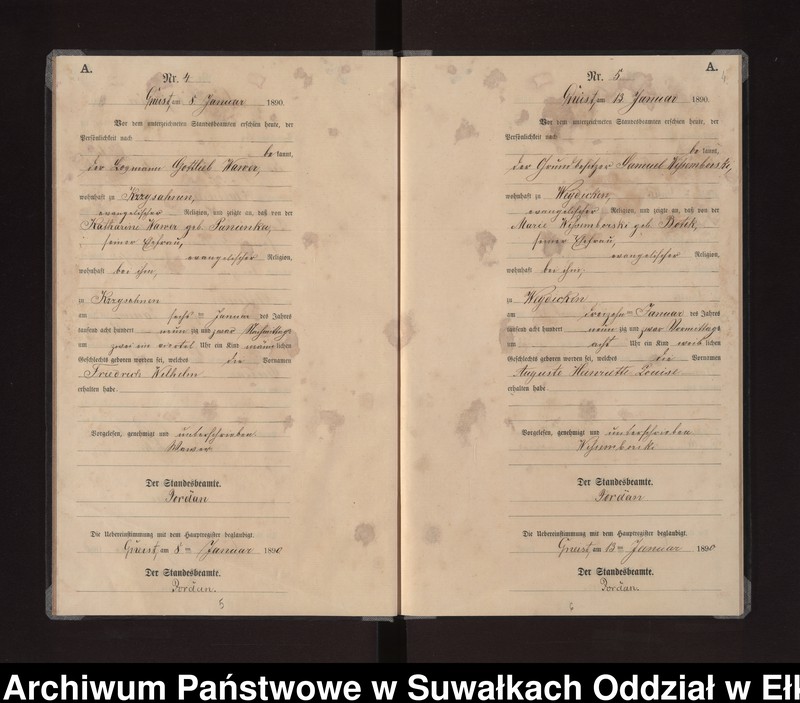 A.
Nr. 4
am 8 Januar 1890.
Vor dem unterzeichneten Standesbeamten erschien heute, der
Persönlichkeit nach
be kannt,
der Losmann Gottlieb Wawer,
wohnhaft zu
evangelischer Religion, und zeigte an, daß von der
Katharine Wawer geb.
seiner Ehefrau,
evangelischer Religion,
wohnhaft bei ihm,
zu
am sechs ten Januar des Jahres
tausend acht hundert neun zig und zwar Nachmittags
um zwei ein viertel Uhr ein Kind männlichen
Geschlechts geboren worden sei, welches die Vornamen
Friedrich Wilhelm
erhalten habe.
Vorgelesen, genehmigt und unterschrieben
Wawer
Der Standesbeamte.
Jordan
Die Uebereinstimmung mit dem Hauptregister beglaubigt.
am 8 ten Januar 1890
Der Standesbeamte.
Jordan.
5
A.
Nr. 5
am 13 Januar 1890.
Vor dem unterzeichneten Standesbeamten erschien heute, der
Persönlichkeit nach
be kannt,
der Grundbesitzer Samuel
wohnhaft zu
evangelischer Religion, und zeigte an, daß von der
Marie geb.
seiner Ehefrau,
evangelischer Religion,
wohnhaft bei ihm,
zu
am dreizehn ten Januar des Jahres
tausend acht hundert neun zig und zwar Vormittags
um acht Uhr ein Kind weib lichen
Geschlechts geboren worden sei, welches die Vornamen
Auguste Henriette Louise
erhalten habe
Vorgelesen, genehmigt und unterschrieben
Der Standesbeamte.
Jordan
Die Uebereinstimmung mit dem Hauptregister beglaubigt.
am 13 ten Januar 1890
Der Standesbeamte.
Jordan.
6
Archiwum Państwowe w Suwałkach Oddział w Ełk